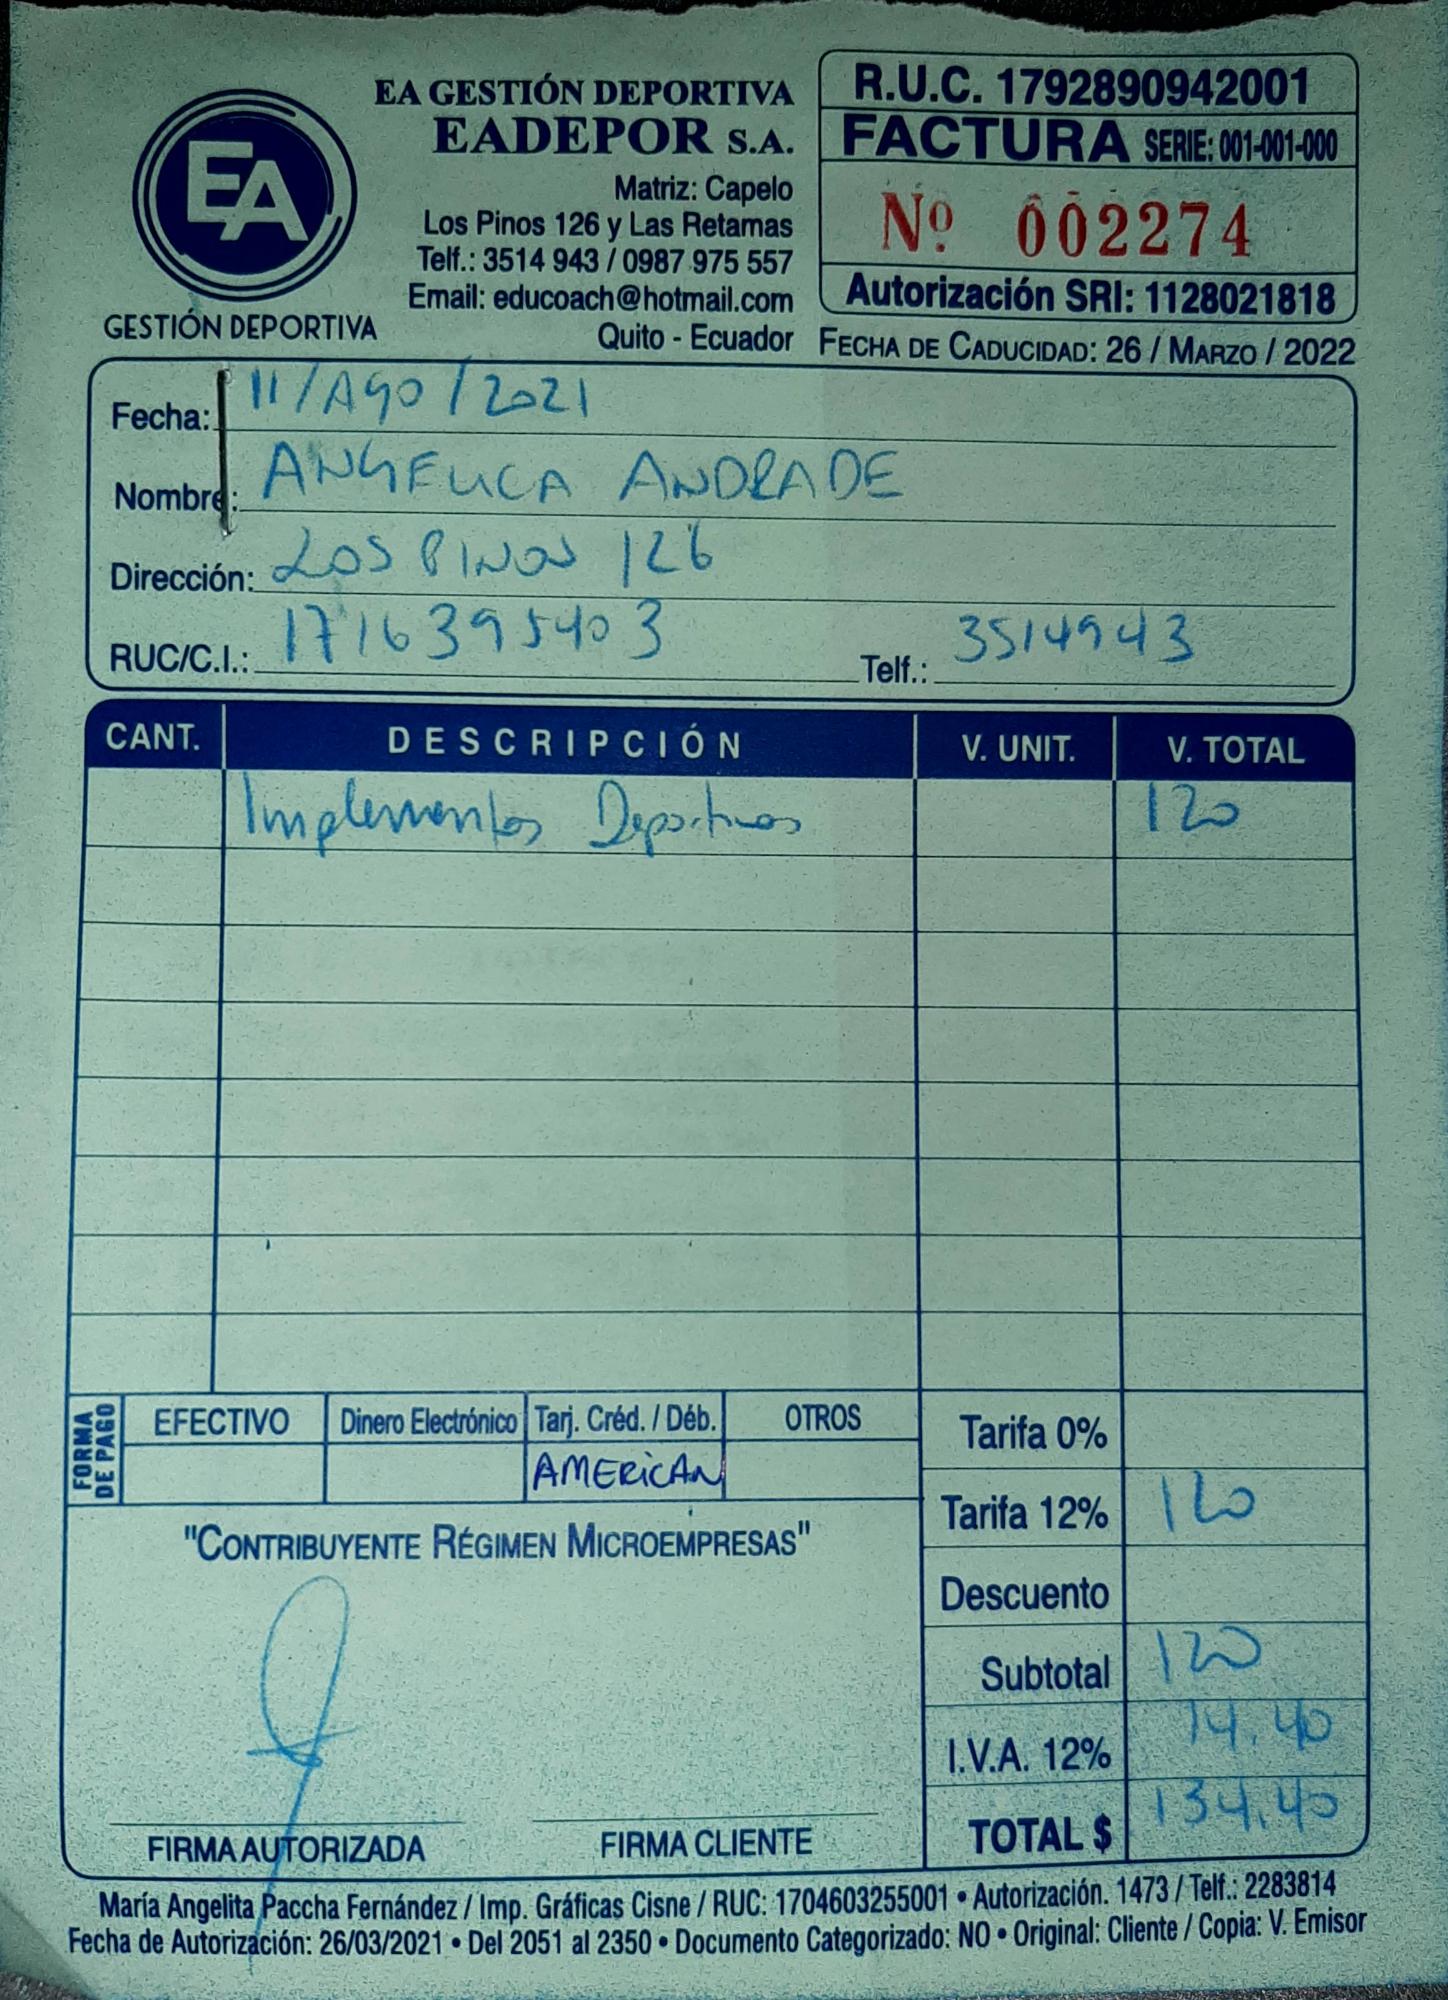 EA
GESTIÓN DEPORTIVA
EA GESTIÓN DEPORTIVA
EADEPOR S.A.
Matriz: Capelo
Los Pinos 126 y Las Retamas
Telf.: 3514 943 / 0987 975 557
Email: educoach@hotmail.com
Quito - Ecuador
R.U.C. 1792890942001
FACTURA SERIE: 001-001-000
Nº 002274
Autorización SRI: 1128021818
FECHA DE CADUCIDAD: 26 / MARZO / 2022
Fecha: 11/AGO/2021
Nombre: ANGELICA ANDRADE
Dirección: LOS PINOS 126
RUC/C.I.: 1716395403 Telf.: 3514943
CANT. DESCRIPCIÓN V. UNIT. V. TOTAL
Implementos Deportivos 120
FORMA DE PAGO
EFECTIVO Dinero Electrónico Tarj. Créd. / Déb. OTROS
AMERICAN
Tarifa 0%
Tarifa 12% 120
Descuento
Subtotal 120
I.V.A. 12% 14.40
TOTAL $ 134.40
"CONTRIBUYENTE RÉGIMEN MICROEMPRESAS"
FIRMA AUTORIZADA FIRMA CLIENTE
María Angelita Paccha Fernández / Imp. Gráficas Cisne / RUC: 1704603255001 • Autorización. 1473 / Telf.: 2283814
Fecha de Autorización: 26/03/2021 • Del 2051 al 2350 • Documento Categorizado: NO • Original: Cliente / Copia: V. Emisor